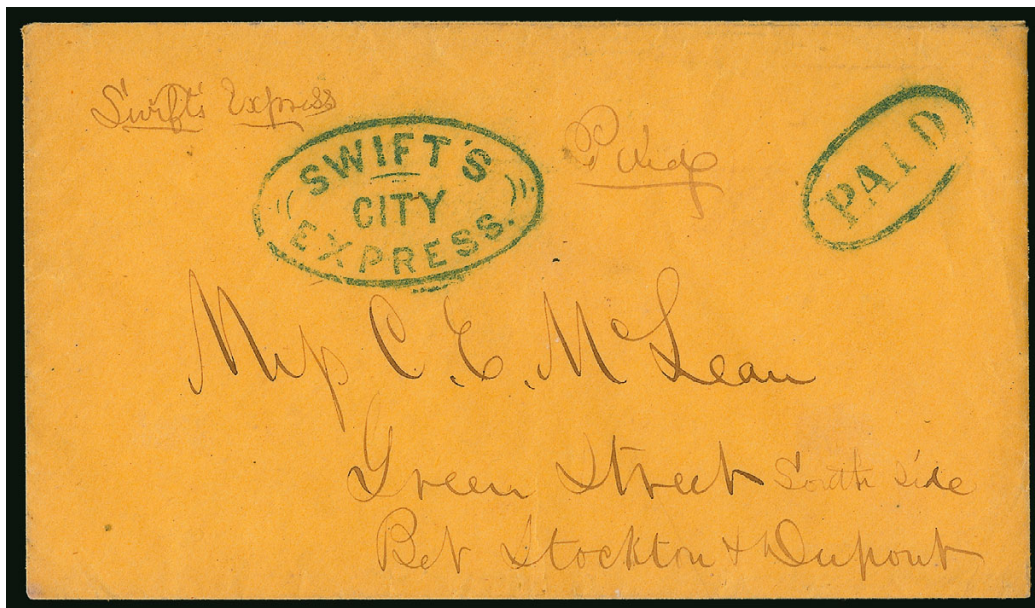 Swift's Express
SWIFT'S
CITY
EXPRESS.
PAID
Miss C. E. McLean
Green Street South Side
Bet Stockton & Dupont